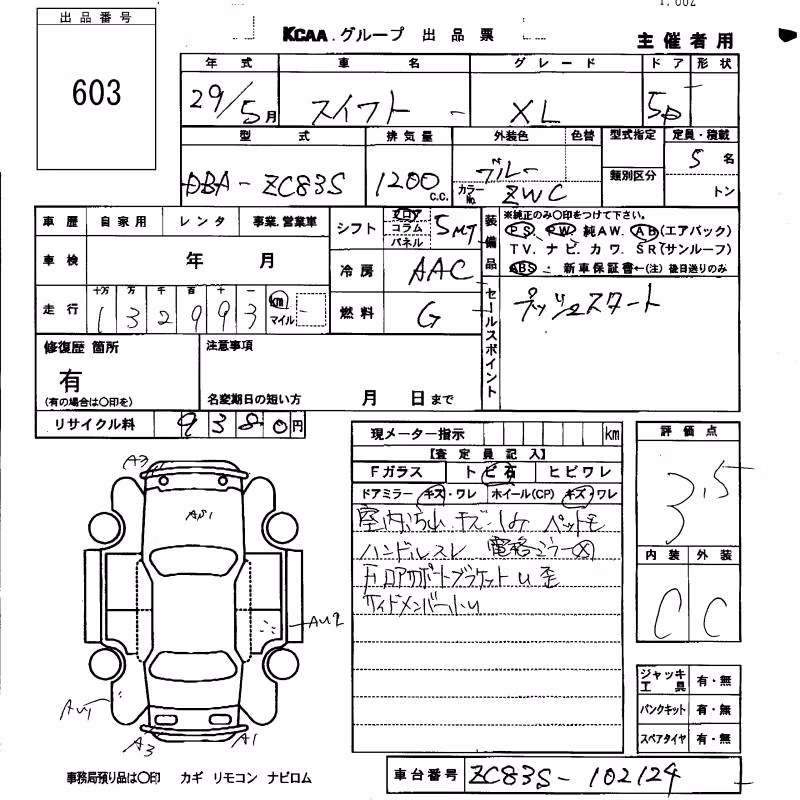 出品番号
603
KCAA.グループ 出品票
主催者用
年式 車名 グレード ドア 形状
29/5月 スイフト - XL 5D
型式 排気量 外装色 色替 型式指定 定員・積載
DBA-ZC83S 1200 c.c. ブルー カラーNo. ZWC 類別区分 5名 トン
車歴 自家用 レンタ 事業.営業車 シフト フロア コラム パネル 5MT
装備品 ※純正のみ〇印をつけて下さい。
PS. PW. 純AW. AB(エアバック)
TV. ナビ. カワ. SR(サンルーフ)
ABS. 新車保証書←(注)後日送りのみ
車検 年 月 冷房 AAC
走行 十万 万 千 百 十 一 km マイル
1 3 2 9 9 3
燃料 G
セールスポイント プッシュスタート
修復歴 箇所 注意事項
有
(有の場合は〇印を)
名変期日の短い方 月 日まで
リサイクル料 9380円
現メーター指示 km
評価点
3.5
【査定員記入】
Fガラス トビ石 ヒビワレ
ドアミラー キズ・ワレ ホイール(CP) キズ・ワレ
ハンドルスレ 電格ミラー
サイドメンバー小U
内装 外装
C C
A3
AU2
A3 A1
ジャッキ工具 有・無
パンクキット 有・無
スペアタイヤ 有・無
事務局預り品は〇印 カギ リモコン ナビロム
車台番号 ZC83S-102124